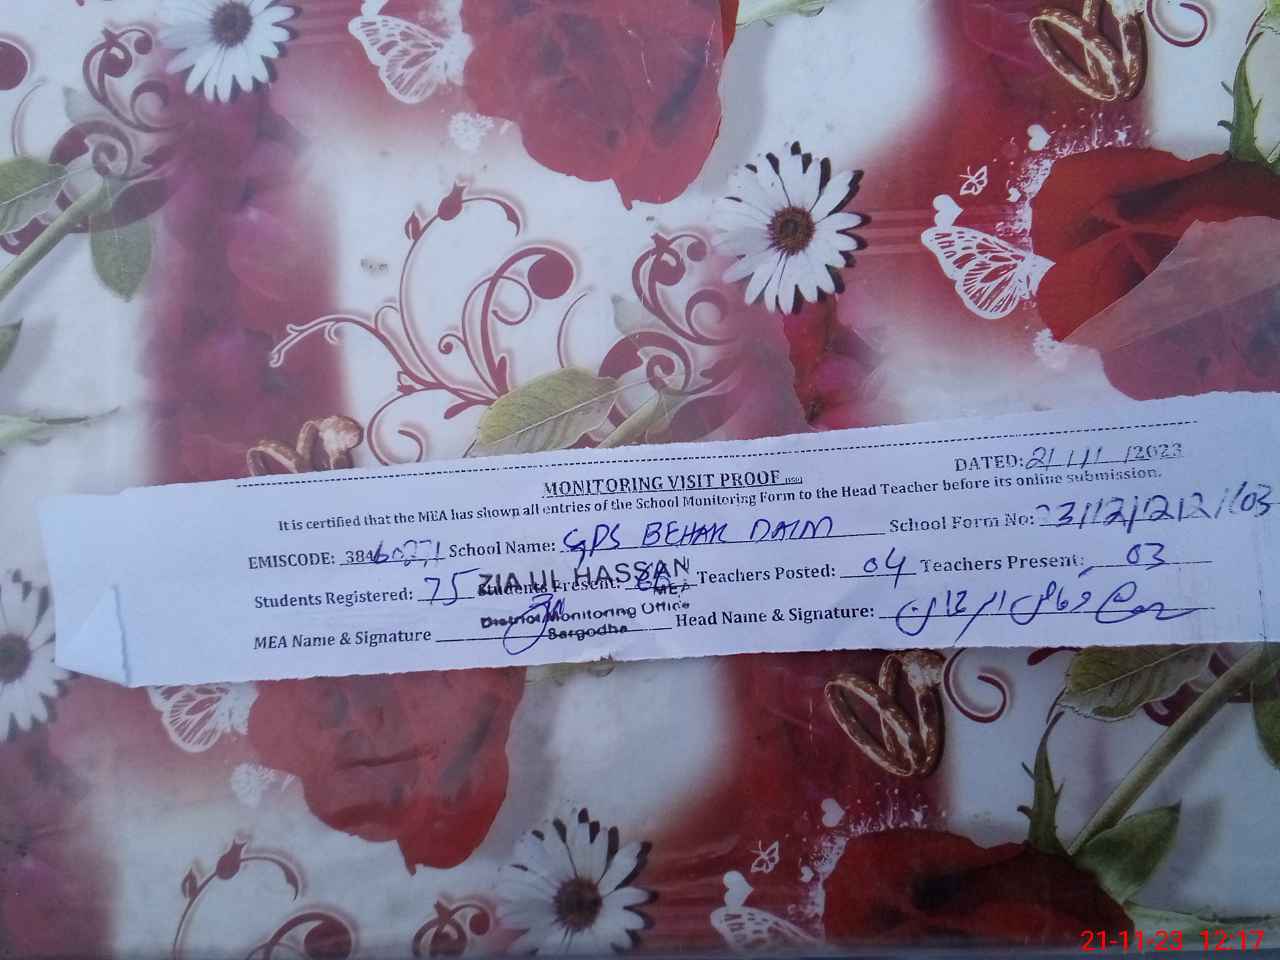 MONITORING VISIT PROOF
DATED: 21/11/2023
It is certified that the MEA has shown all entries of the School Monitoring Form to the Head Teacher before its online submission.
EMISCODE: 384 School Name: GPS BEHAK DAIM School Form No:
Students Registered: 75 Students Present: Teachers Posted: 04 Teachers Present: 03
ZIA UL HASSAN
MEA
District Monitoring Office
Sargodha
MEA Name & Signature Head Name & Signature:
21-11-23 12:17